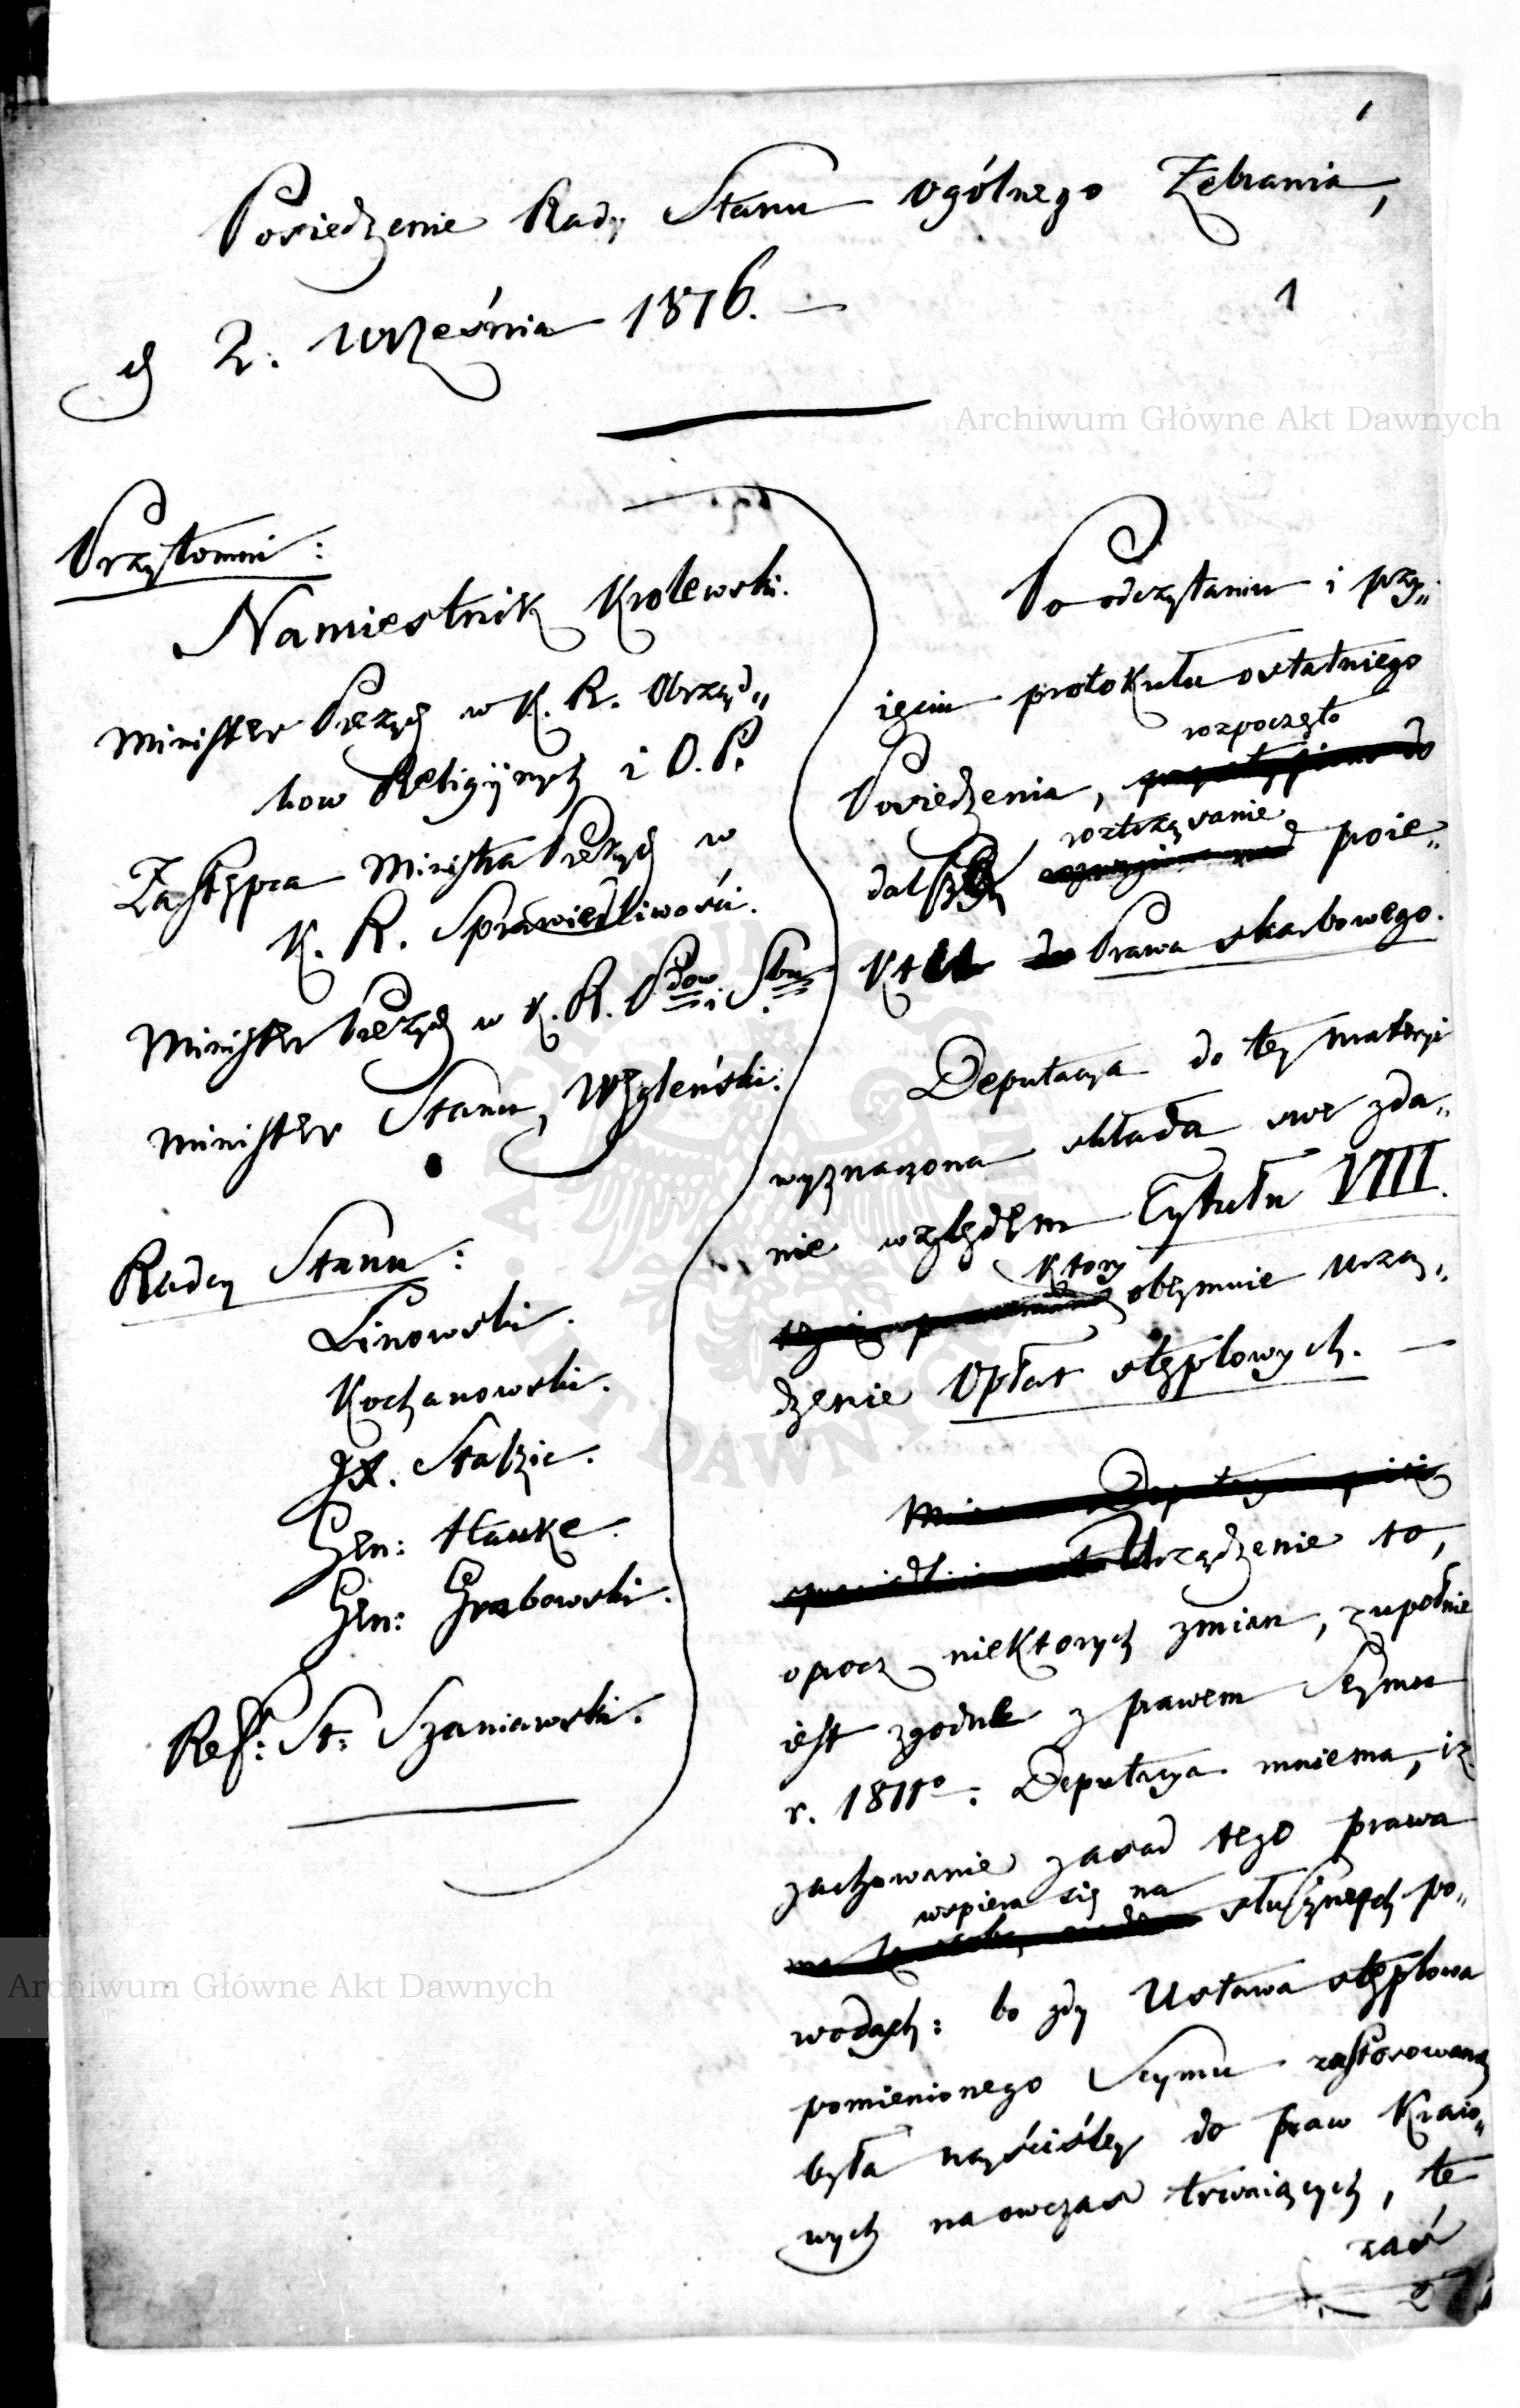 1
Posiedzenie Rady Stanu Ogólnego Zebrania,
d 2. Września 1816. —
1
Archiwum Główne Akt Dawnych
Przytomni:
Namiestnik Krolewski.
Minister Prezyd w K. R. Obrząd„
kow Religiynych i O. P.
Zastępca Ministra Prezyd w
K. R. Sprawiedliwości.
Minister Prezyd w K. R. Pdow i Sbu
Minister Stanu, Węgleński.
Radcy Stanu:
Linowski.
Kochanowski.
JX. Staszic.
Gen: Hauke.
Gen: Grabowski.
Ref: St: Szaniawski.
Po odczytaniu i przy„
ięciu protokułu ostatniego
rozpoczęto
Posiedzenia,
roztrząsanie
dalsze proie„
ktu Prawa skarbowego.
Deputacya do tey materyi
wyznaczona składa swe zda„
nie względem Tytułu VIII.
ktory
obeymuie urzą„
dzenie Opłat stęplowych. —
Urządzenie to,
oprocz niektorych zmian, zupełnie
iest zgodne z prawem Seymu
r. 1811o. Deputacya mniema, iż
zachowanie zasad tego prawa
wspiera się na
słusznych po„
wodach: bo gdy Ustawa stęplowa
pomienionego Seymu zastosowaną
była nayściśley do praw kraio„
wych naowczas trwaiących, te
zaś
Archiwum Główne Akt Dawnych
ARCHIWUM GŁÓWNE AKT DAWNYCH